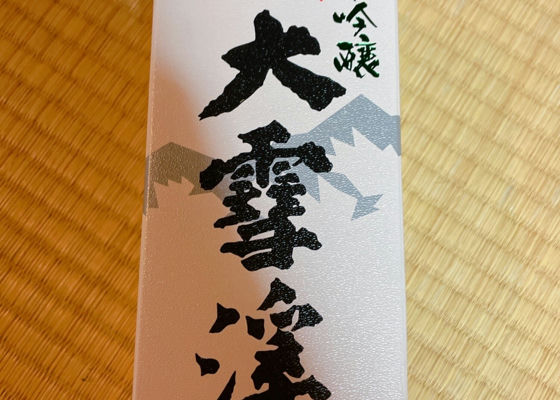 吟醸
大雪渓